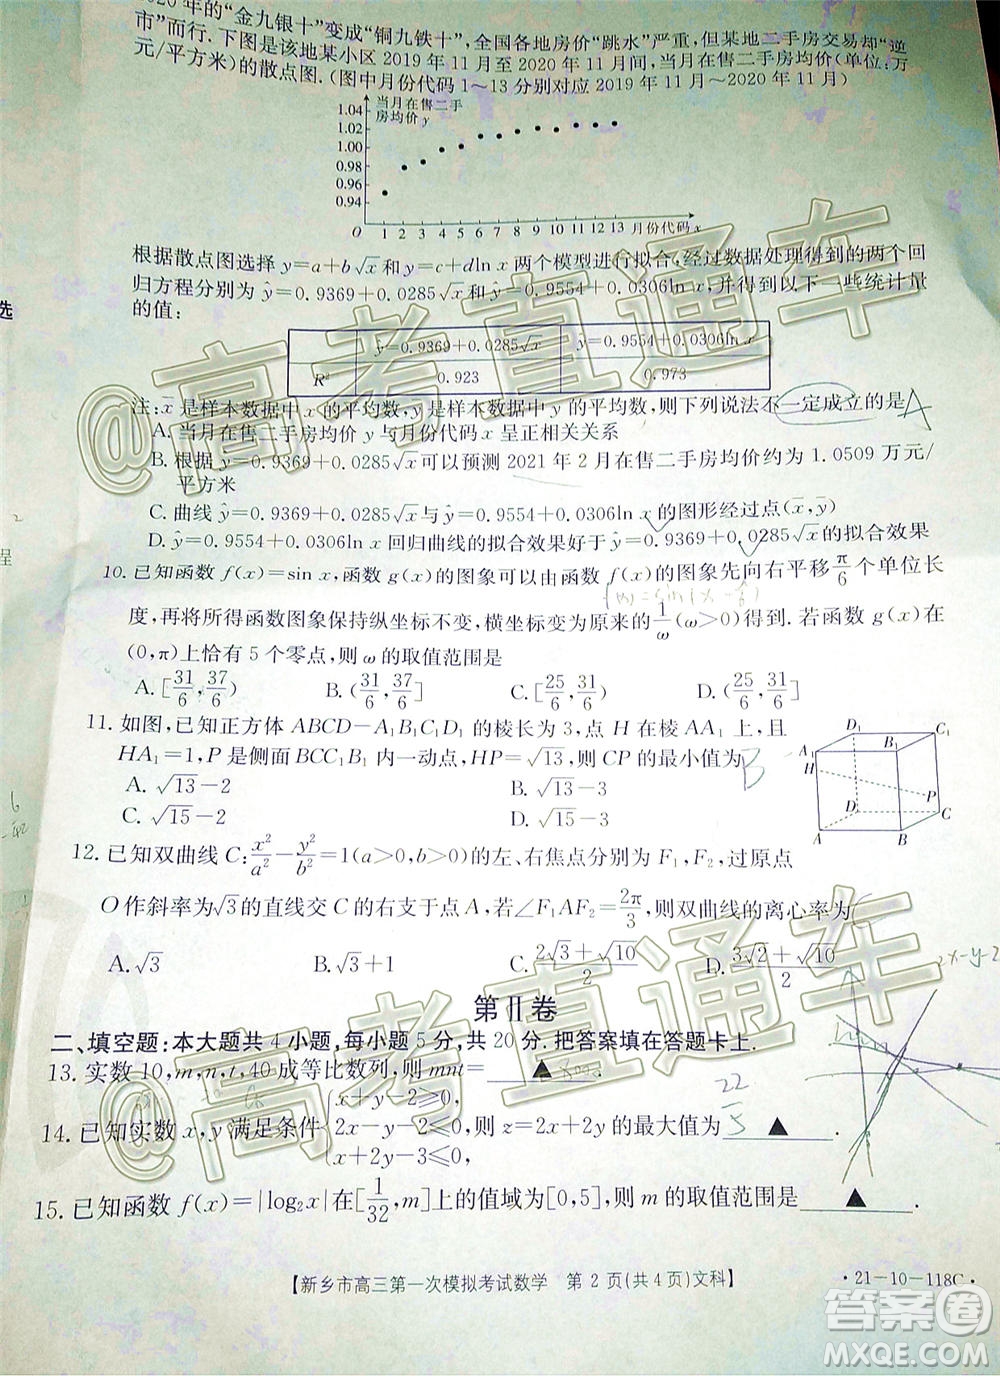 2020年的“金九银十”变成“铜九铁十”,全国各地房价“跳水”严重,但某地二手房交易却“逆
市”而行.下图是该地某小区2019年11月至2020年11月间,当月在售二手房均价(单位:万
元/平方米)的散点图.(图中月份代码1~13分别对应2019年11月~2020年11月)
当月在售二手
房均价 y
1.04
1.02
1.00
0.98
0.96
0.94
O 1 2 3 4 5 6 7 8 9 10 11 12 13 月份代码 x
根据散点图选择 y=a+b√x 和 y=c+dln x 两个模型进行拟合,经过数据处理得到的两个回
归方程分别为 ŷ=0.9369+0.0285√x 和 ŷ=0.9554+0.0306ln x,并得到以下一些统计量
的值:
ŷ=0.9369+0.0285√x ŷ=0.9554+0.0306ln x
R² 0.923 0.973
注:x̄ 是样本数据中 x 的平均数,ȳ 是样本数据中 y 的平均数,则下列说法不一定成立的是 A
A.当月在售二手房均价 y 与月份代码 x 呈正相关关系
B.根据 ŷ=0.9369+0.0285√x 可以预测2021年2月在售二手房均价约为1.0509万元/
平方米
C.曲线 ŷ=0.9369+0.0285√x 与 ŷ=0.9554+0.0306ln x 的图形经过点(x̄,ȳ)
D.ŷ=0.9554+0.0306ln x 回归曲线的拟合效果好于 ŷ=0.9369+0.0285√x 的拟合效果
10.已知函数 f(x)=sin x,函数 g(x)的图象可以由函数 f(x)的图象先向右平移 π/6 个单位长
度,再将所得函数图象保持纵坐标不变,横坐标变为原来的 1/ω (ω>0)得到.若函数 g(x)在
(0,π)上恰有5个零点,则 ω 的取值范围是
A.[31/6,37/6) B.(31/6,37/6] C.[25/6,31/6) D.(25/6,31/6]
11.如图,已知正方体 ABCD-A₁B₁C₁D₁ 的棱长为3,点 H 在棱 AA₁ 上,且
HA₁=1,P 是侧面 BCC₁B₁ 内一动点,HP=√13,则 CP 的最小值为 B
A.√13-2 B.√13-3
C.√15-2 D.√15-3
D₁ C₁ A₁ B₁ H P D C A B
12.已知双曲线 C:x²/a²-y²/b²=1(a>0,b>0)的左、右焦点分别为 F₁,F₂,过原点
O 作斜率为√3的直线交 C 的右支于点 A,若∠F₁AF₂=2π/3,则双曲线的离心率为
A.√3 B.√3+1 C.(2√3+√10)/2 D.(3√2+√10)/2
第Ⅱ卷
二、填空题:本大题共4小题,每小题5分,共20分.把答案填在答题卡上.
13.实数10,m,n,t,40成等比数列,则 mnt=▲
14.已知实数 x,y 满足条件{x+y-2≥0, 2x-y-2≤0, x+2y-6≤0,则 z=2x+2y 的最大值为 22/5 ▲ .
15.已知函数 f(x)=|log₂x|在[1/32,m]上的值域为[0,5],则 m 的取值范围是 ▲ .
【新乡市高三第一次模拟考试数学 第2页(共4页)文科】
·21-10-118C·
@高考直通车
@高考直通车
答案圈
MXQE.COM